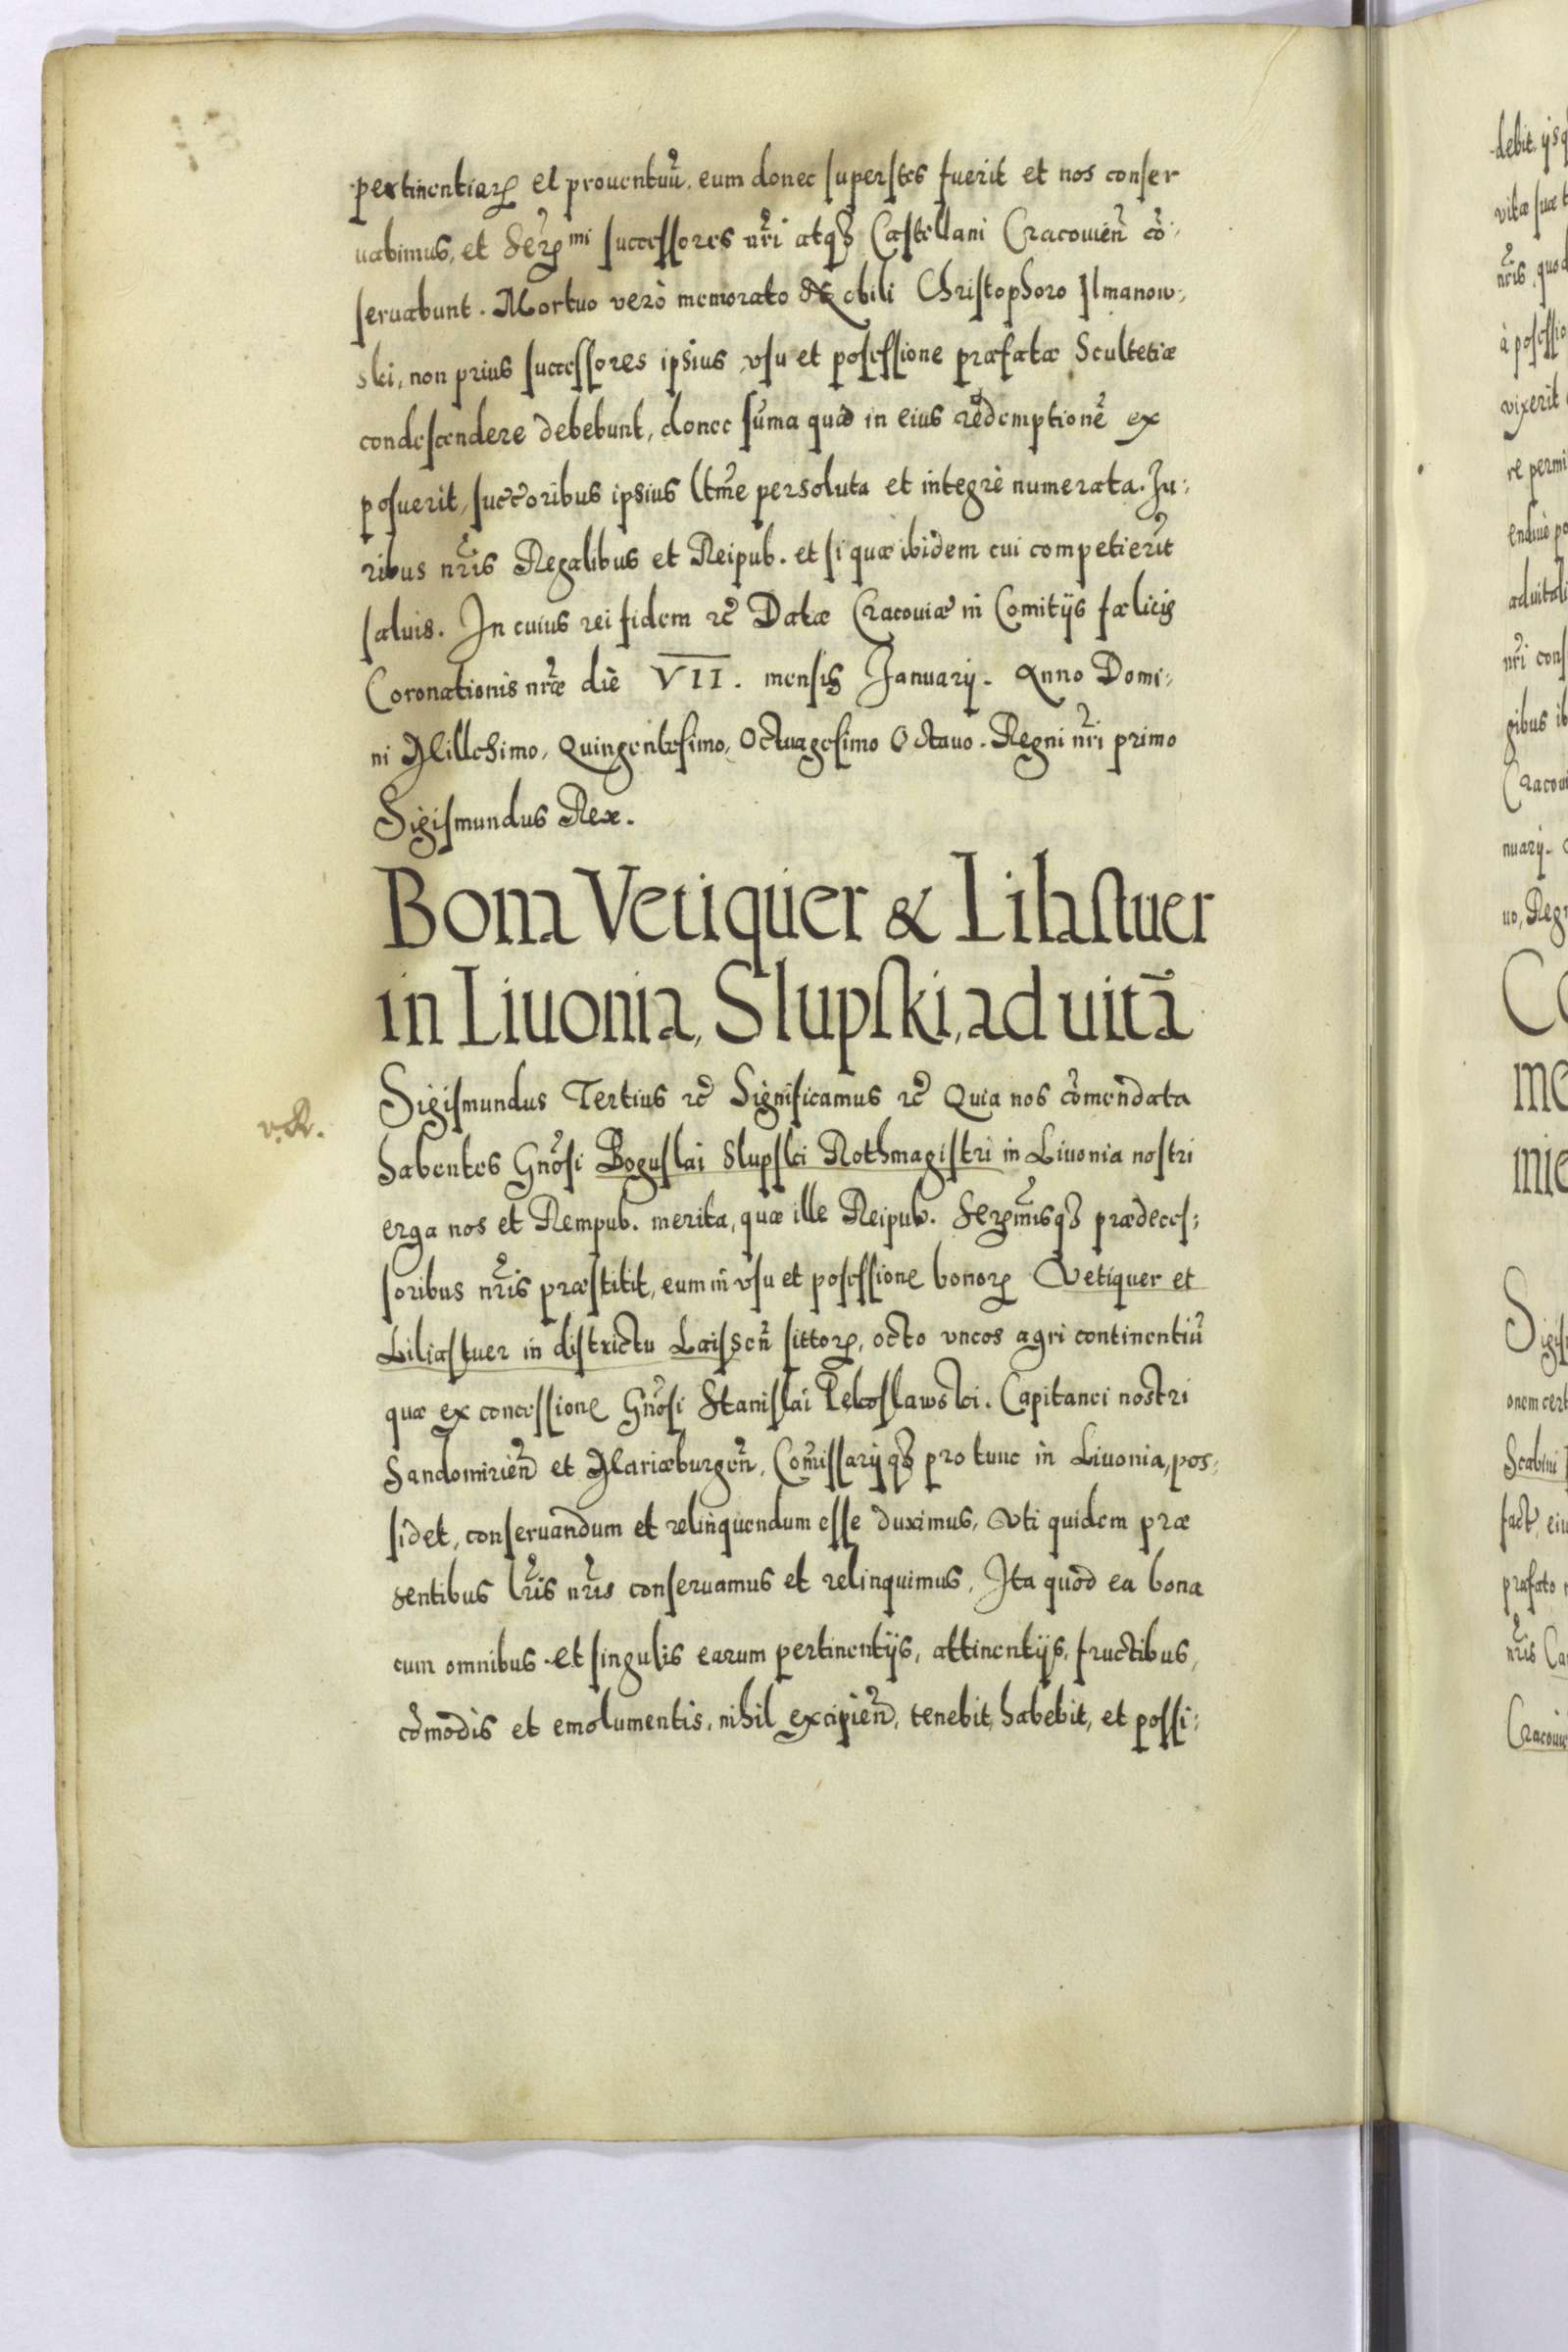 pertinentiarꝝ et prouentuũ, eum donec superstes fuerit et nos conser
uabimus, et Serꝝmi successores nr̃i atqꝫ Castellani Cracouień cõ:
seruabunt. Mortuo verò memorato Nobili Christophoro Ilmanow:
ski, non prius successores ipsius vsu et possessione præfatæ Scultetiæ
condescendere debebunt, donec sũma quàd in eius redemptionẽ ex
posuerit, succ̃oribus ipsius ltm̃e persoluta et integrè numerata. Ju:
ribus nr̃is Regalibus et Reipub. et si quæ ibidem cui competierũt
saluis. In cuius rei fidem ꝛc̃ Datæ Cracouiæ in Comitijs fælicis
Coronationis nr̃æ diẽ VII. mensis Januarij. Anno Domi:
ni Millesimo, Quingentesimo, Octuagesimo Octauo. Regni nr̃i primo
Sigismundus Rex.
Bona Vetiquer & Liliastuer
in Liuonia, Slupski, ad uitã
Sigismundus Tertius ꝛc̃ Significamus ꝛc̃ Quia nos cõmendata
v.R.
habentes Gnõsi Boguslai Slupski Rothmagistri in Liuonia nostri
erga nos et Rempub. merita, quæ ille Reipub. Serꝝmĩsqꝫ prædeces:
soribus nr̃is præstitit, eum in vsu et possessione bonorꝝ Vetiquer et
Liliastuer in districtu Laisseñ sittorꝝ, octo vncos agri continentiũ
quæ ex concessione Gnõsi Stanislai Pekoslawski. Capitanei nostri
Sandomirień et Mariæburgeñ, Com̃issarij qꝫ pro tunc in Liuonia, pos:
sidet, conseruandum et relinquendum esse duximus, Vti quidem præ
sentibus lr̃is nr̃is conseruamus et relinquimus, Ita quod ea bona
cum omnibus et singulis earum pertinentijs, attinentijs, fructibus,
cõmodis et emolumentis, nihil excipień, tenebit, habebit, et possi: